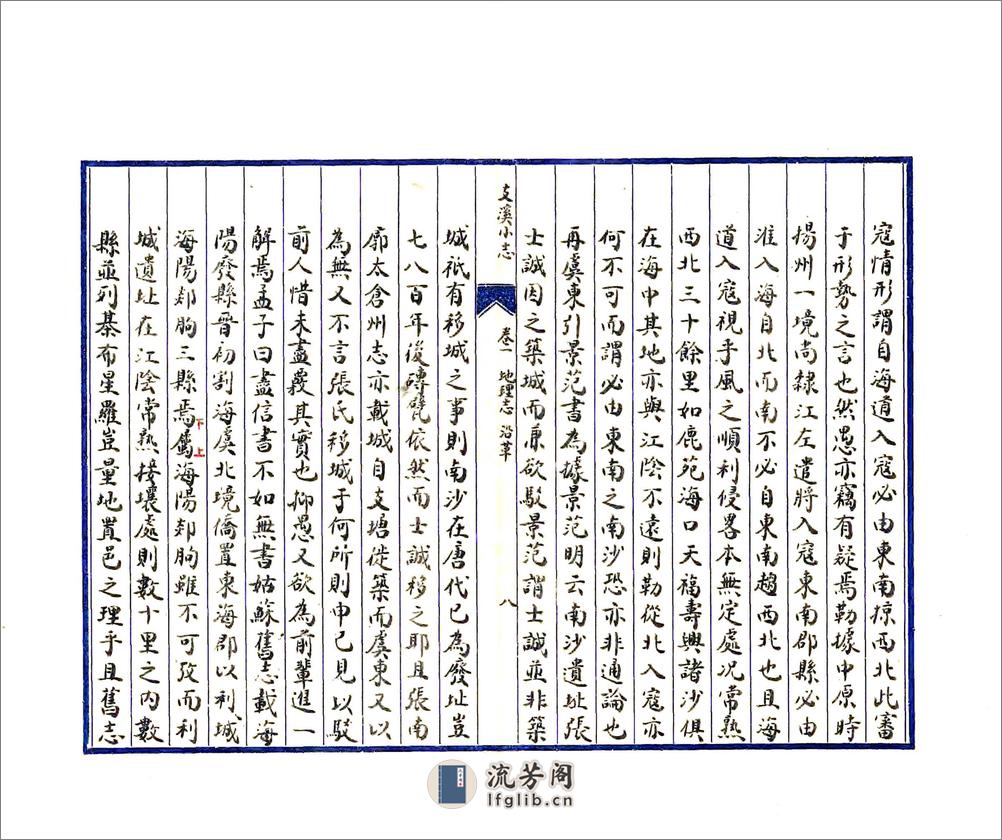 寇情形謂自海道入寇必由東南掠西北此審
于形勢之言也然愚亦竊有疑焉勒據中原時
揚州一境尚隸江左遣將入寇東南郡縣必由
淮入海自北而南不必自東南趨西北也且海
道入寇視乎風之順利侵畧本無定處况常熟
西北三十餘里如鹿苑海口天福壽興諸沙俱
在海中其地亦與江陰不遠則勒從北入寇亦
何不可而謂必由東南之南沙恐亦非通論也
再虞東引景范書為據景范明云南沙遺址張
士誠因之築城而康欲駁景范謂士誠並非築
支溪小志 卷一 地理志 沿革 八
城祇有移城之事則南沙在唐代已為廢址豈
七八百年後磚甓依然而士誠移之耶且張南
廓太倉州志亦載城自支塘徙築而虞東又以
為無又不言張氏移城于何所則申己見以駁
前人惜未盡覈其實也抑愚又欲為前輩進一
解焉孟子曰盡信書不如無書姑蘇舊志載海
陽廢縣晉初割海虞北境僑置東海郡以利城
海陽郯朐三縣焉屬海陽郯朐雖不可攷而利
下上
城遺址在江陰常熟接壤處則數十里之內數
縣並列棊布星羅豈量地置邑之理乎且舊志
流芳阁
lfglib.cn